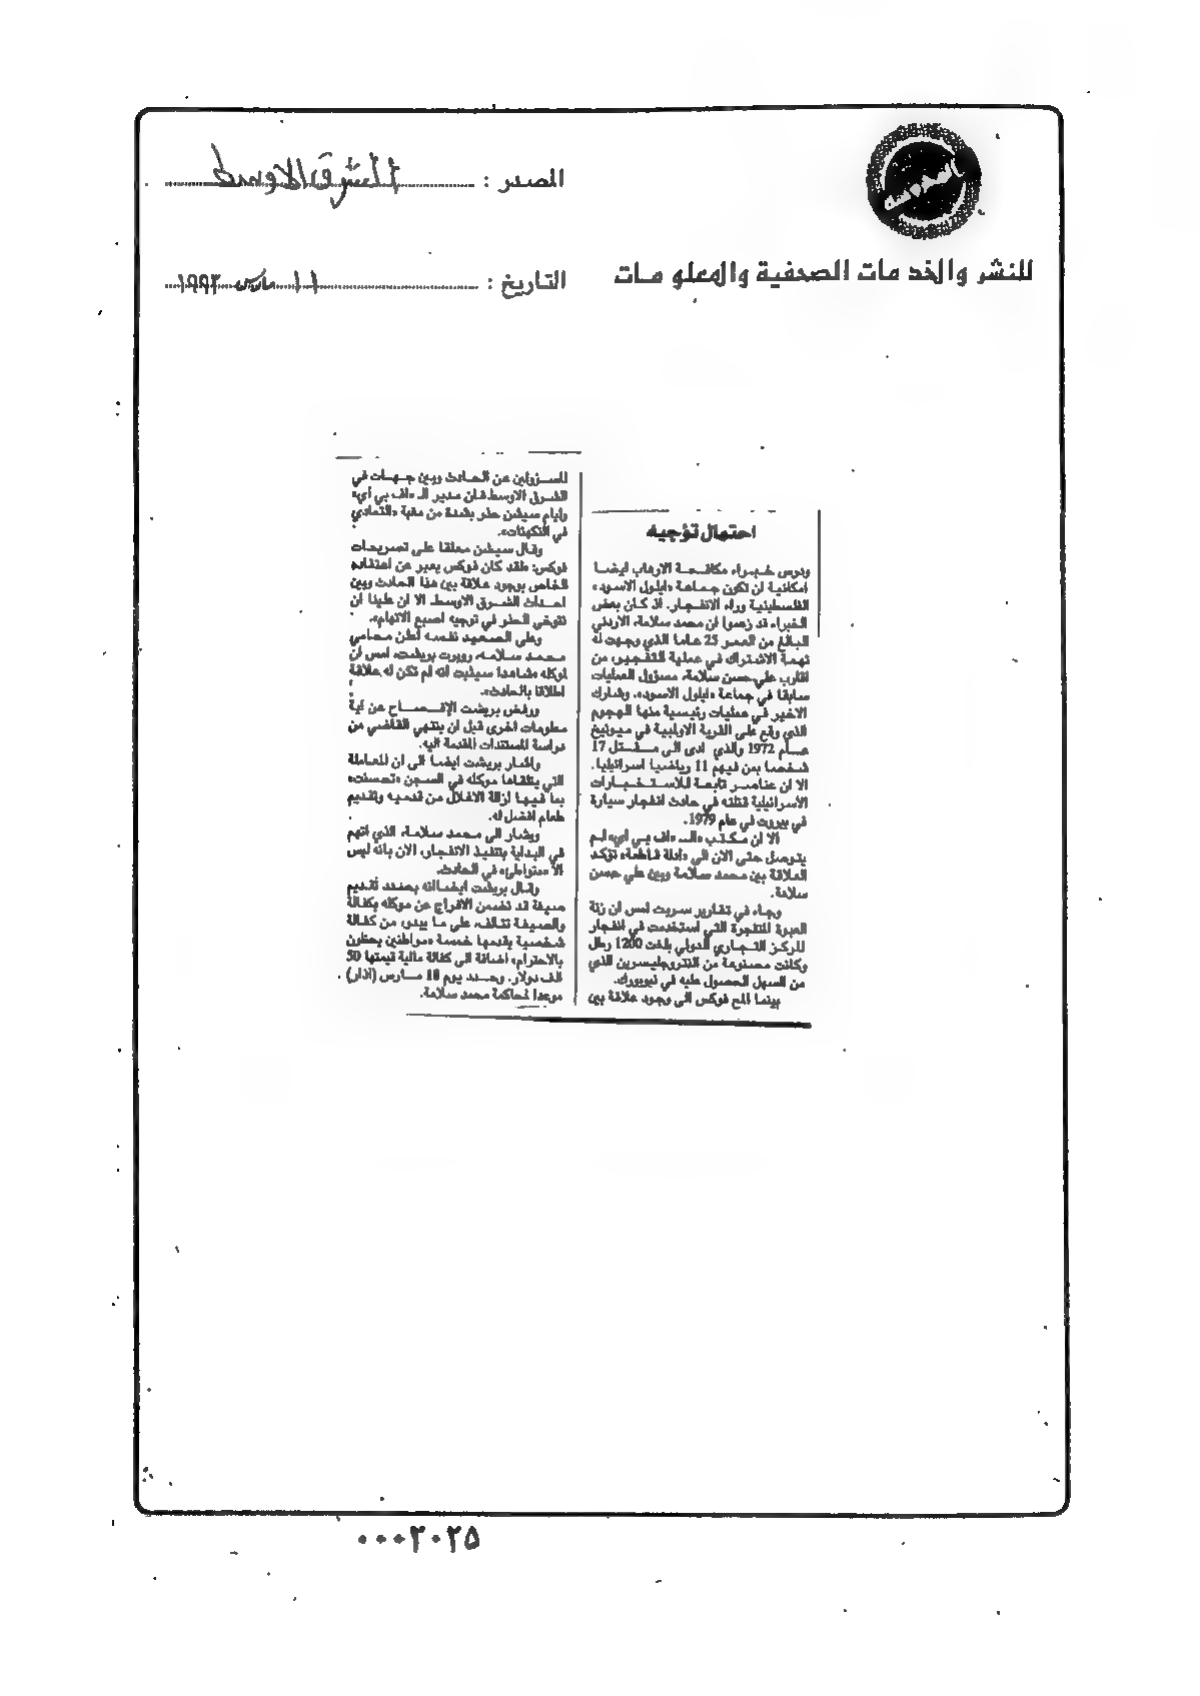 المصدر : الشرق الاوسط
للنشر والخدمات الصحفية والمعلومات
التاريخ : ١١ مارس ١٩٩٣
احتمال توجيه
ودرس خبراء مكافحة الارهاب ايضا
امكانية ان تكون جماعة «ايلول الاسود»
الفلسطينية وراء الانفجار. اذ كان بعض
الخبراء قد زعموا ان محمد سلامة، الاردني
البالغ من العمر 25 عاما الذي وجهت له
تهمة الاشتراك في عملية التفجير، من
اقارب علي حسن سلامة، مسؤول العمليات
سابقا في جماعة «ايلول الاسود». وشارك
الاخير في عمليات رئيسية منها الهجوم
الذي وقع على القرية الاولبية في ميونيخ
عام 1972 والذي ادى الى مقتل 17
شخصا بمن فيهم 11 رياضيا اسرائيليا.
الا ان عناصر تابعة للاستخبارات
الاسرائيلية قتلته في حادث انفجار سيارة
في بيروت في عام 1979.
الا ان مكتب «الـ «اف بي اي» لم
يتوصل حتى الان الى «ادلة قاطعة» تؤكد
العلاقة بين محمد سلامة وبين علي حسن
سلامة.
وجاء في تقارير سربت امس ان زنة
العبوة المتفجرة التي استخدمت في انفجار
المركز التجاري الدولي بلغت 1200 رطل
وكانت مصنوعة من النتروجليسرين الذي
من السهل الحصول عليه في نيويورك.
بينما المح فوكس الى وجود علاقة بين
المسؤولين عن الحادث وبين جهات في
الشرق الاوسط فان مدير الـ «اف بي اي»
وليام سيشن حذر بشدة من مغبة «التمادي
في التكهنات».
وقال سيشن معلقا على تصريحات
فوكس: «لقد كان فوكس يعبر عن اعتقاده
الخاص بوجود علاقة بين هذا الحادث وبين
احداث الشرق الاوسط. الا ان علينا ان
نتوخى الحذر في توجيه اصبع الاتهام».
وعلى الصعيد نفسه اعلن محامي
محمد سلامة، روبرت بريشت، امس ان
لموكله «شاهدا سيثبت انه لم تكن له علاقة
اطلاقا بالحادث».
ورفض بريشت الإفصاح عن أية
معلومات اخرى قبل ان ينتهي القاضي من
دراسة المستندات المقدمة اليه.
واشار بريشت ايضا الى ان المعاملة
التي يتلقاها موكله في السجن «تحسنت»
بما فيها ازالة الاغلال من قدميه وتقديم
طعام افضل له.
ويشار الى محمد سلامة، الذي اتهم
في البداية بتنفيذ الانفجار، الان بانه ليس
الا «متواطئ» في الحادث.
وقال بريشت ايضا انه بصدد تقديم
صيغة قد تضمن الافراج عن موكله بكفالة
والصيغة تتالف، على ما يبدو، من كفالة
شخصية يقدمها خمسة «مواطنين يحظون
بالاحترام» اضافة الى كفالة مالية قيمتها 50
الف دولار. وحدد يوم 18 مارس (آذار)
موعدا لمحاكمة محمد سلامة.
٠٠٠٢٠٢٥